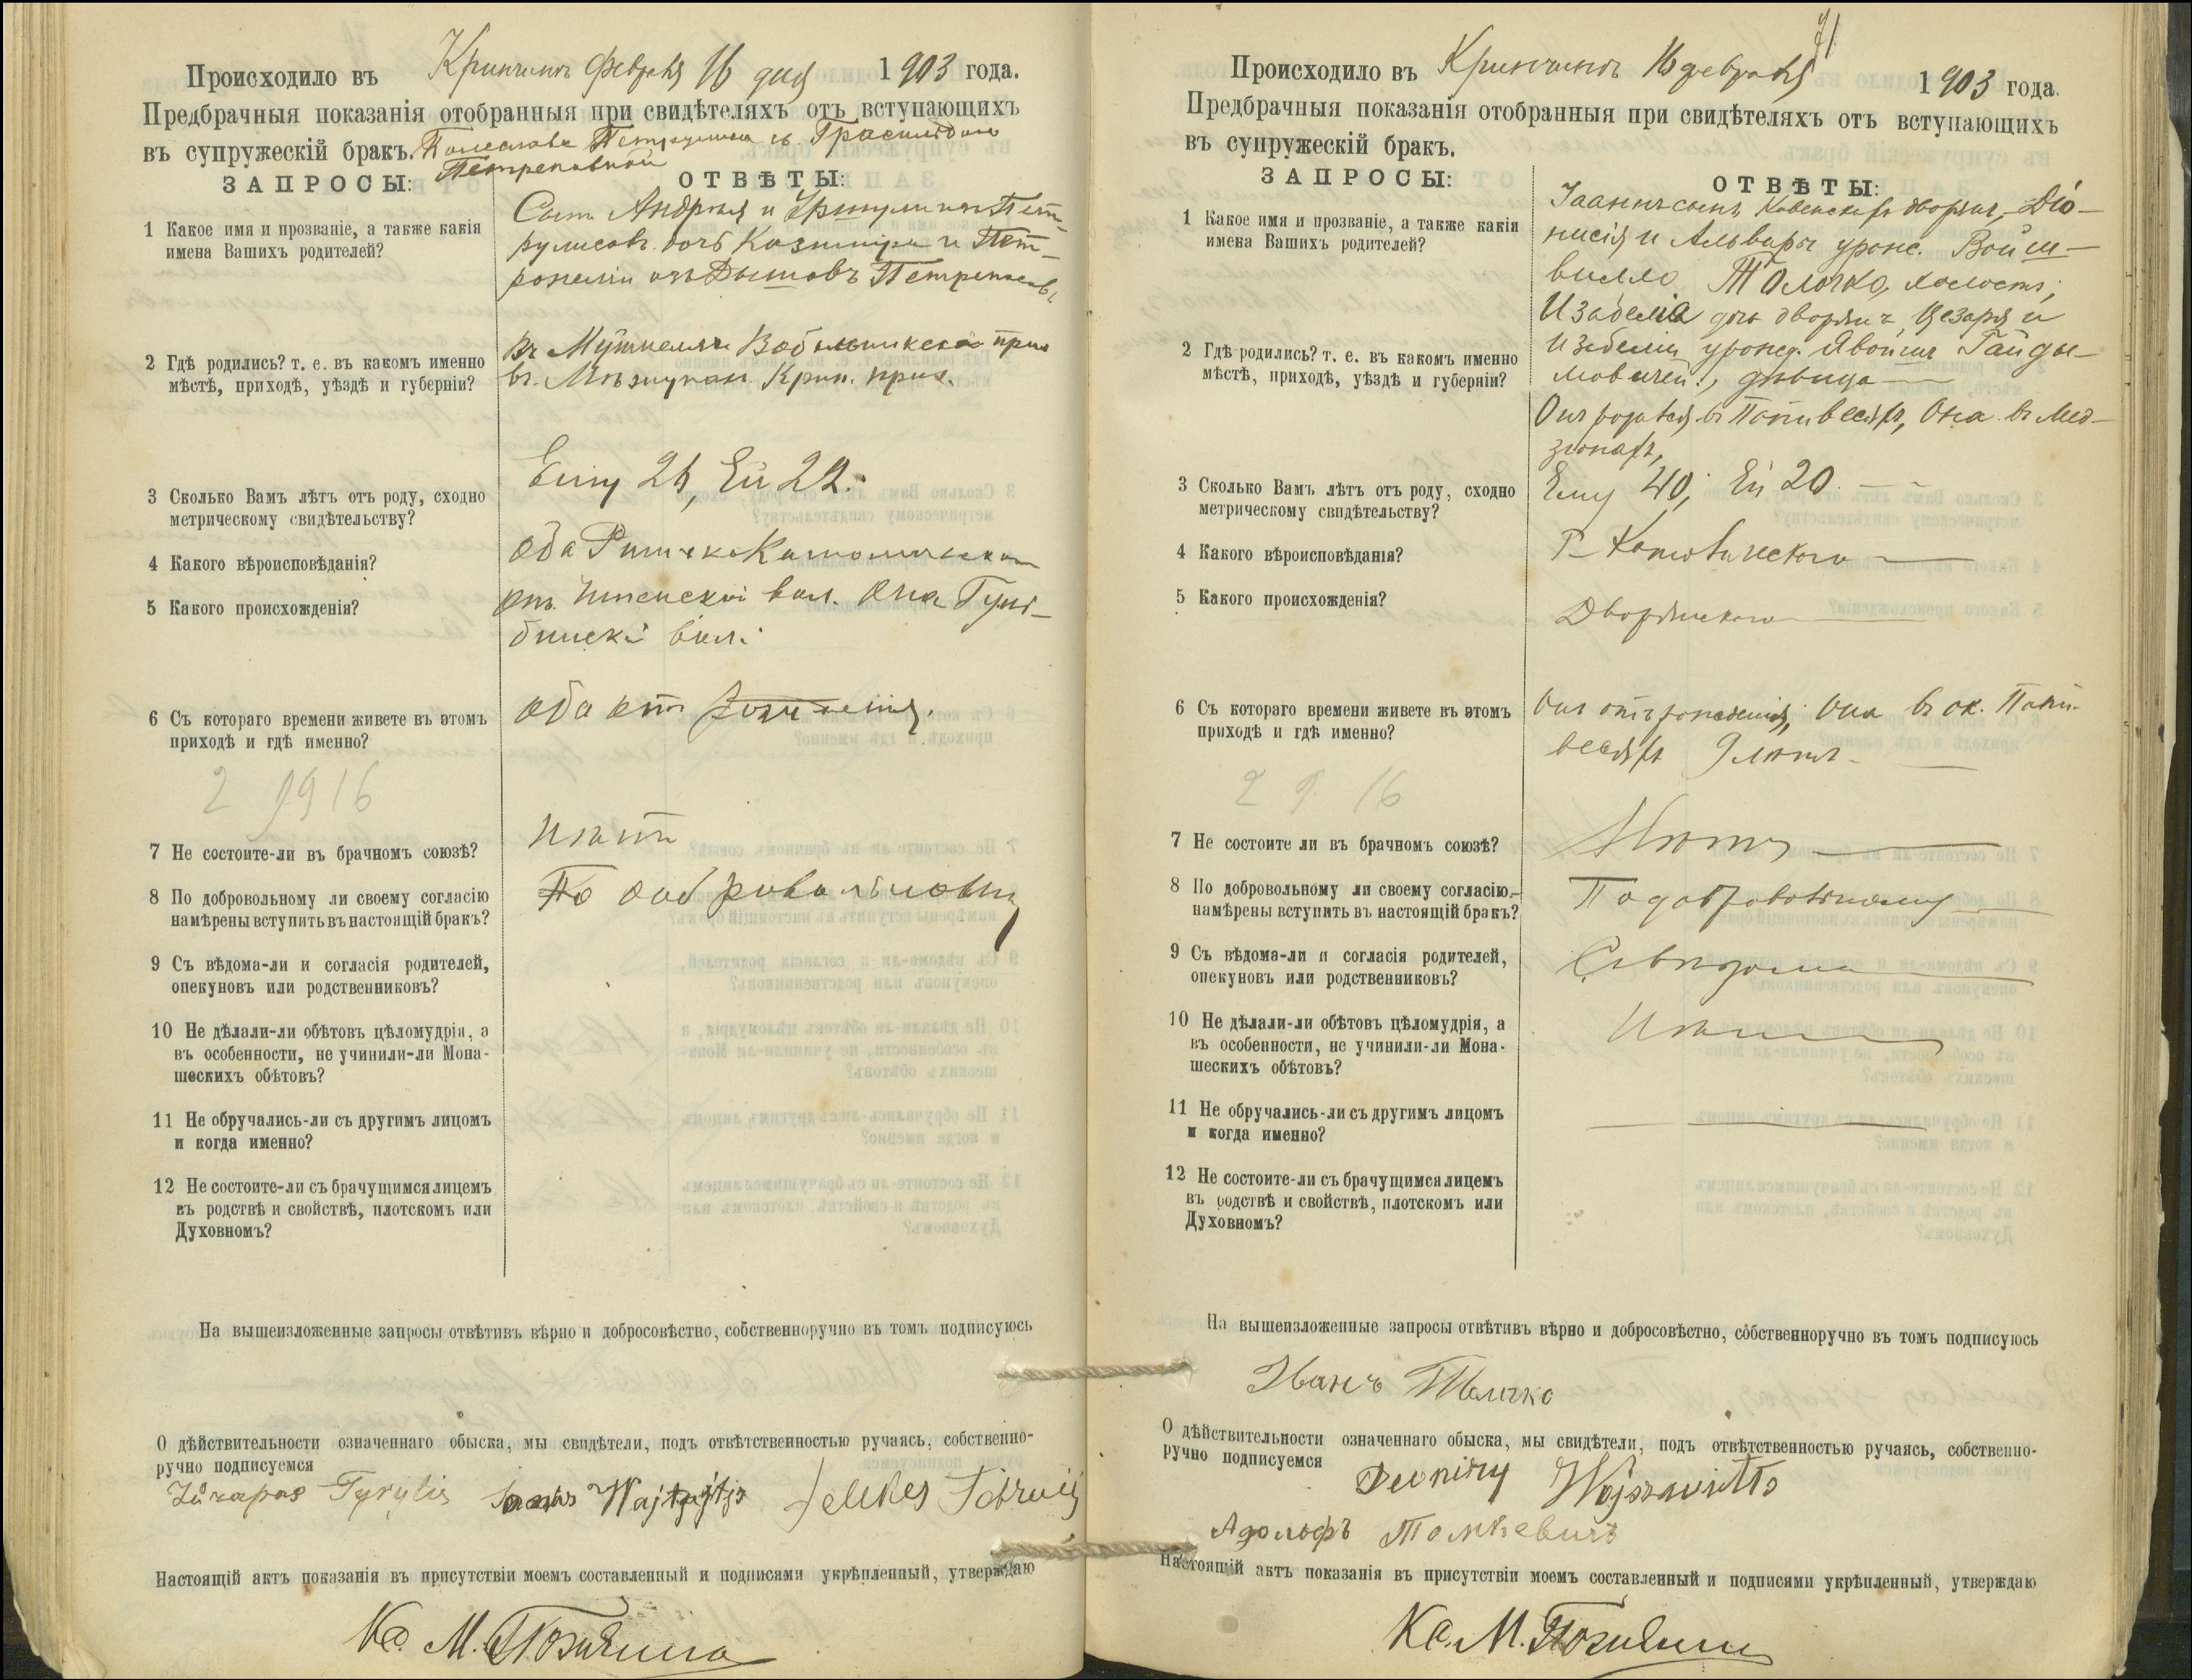 Происходило въ Кринчинъ Февраля 16 дня 1903 года.
Предбрачныя показанія отобранныя при свидѣтеляхъ отъ вступающихъ
въ супружескій бракъ. Болеслава Петрулиса съ
ЗАПРОСЫ:
ОТВѢТЫ:
1 Какое имя и прозваніе, а также какія
имена Вашихъ родителей?
Сынъ Андрея и Пет-
рулисовъ дочь Казиміра и Пет-
ронеліи изъ
2 Гдѣ родились? т. е. въ какомъ именно
мѣстѣ, приходѣ, уѣздѣ и губерніи?
въ прих
въ Крин. прих.
3 Сколько Вамъ лѣтъ отъ роду, сходно
метрическому свидѣтельству?
Ему Ей 22.
4 Какого вѣроисповѣданія?
оба Римско Католическаго
5 Какого происхожденія?
вол. она Гум-
бинской вол.
6 Съ котораго времени живете въ этомъ
приходѣ и гдѣ именно?
оба отъ рожденія.
2 9 16
7 Не состоите-ли въ брачномъ союзѣ?
Нѣтъ
8 По добровольному ли своему согласію
намѣрены вступить въ настоящій бракъ?
По добровольному
9 Съ вѣдома-ли и согласія родителей,
опекуновъ или родственниковъ?
10 Не дѣлали-ли обѣтовъ цѣломудрія, а
въ особенности, не учинили-ли Мона-
шескихъ обѣтовъ?
11 Не обручались-ли съ другимъ лицомъ
и когда именно?
12 Не состоите-ли съ брачущимся лицемъ
въ родствѣ и свойствѣ, плотскомъ или
Духовномъ?
На вышеизложенные запросы отвѣтивъ вѣрно и добросовѣстно, собственноручно въ томъ подписуюсь
О дѣйствительности означеннаго обыска, мы свидѣтели, подъ отвѣтственностью ручаясь, собственно-
ручно подписуемся
Настоящій актъ показанія въ присутствіи моемъ составленный и подписями укрѣпленный, утверждаю
Кс. М.
71
Происходило въ Кринчинъ 16 февраля 1903 года.
Предбрачныя показанія отобранныя при свидѣтеляхъ отъ вступающихъ
въ супружескій бракъ.
ЗАПРОСЫ:
ОТВѢТЫ:
1 Какое имя и прозваніе, а также какія
имена Вашихъ родителей?
Іоаннъ сынъ Ковенскихъ дворянъ, Діо-
нисія и Альвары урожд. Войш-
вилло Толочко, холостъ;
Изабелла дочь дворянъ Цезаря и
Изабелли урожд. Явойшъ Гайды-
мовичей, дѣвица
2 Гдѣ родились? т. е. въ какомъ именно
мѣстѣ, приходѣ, уѣздѣ и губерніи?
Онъ родился въ Она въ Мед-
3 Сколько Вамъ лѣтъ отъ роду, сходно
метрическому свидѣтельству?
Ему 40; Ей 20.
4 Какого вѣроисповѣданія?
Р-Католическаго
5 Какого происхожденія?
Дворянскаго
6 Съ котораго времени живете въ этомъ
приходѣ и гдѣ именно?
Онъ отъ рожденія, Она въ ок.
9 лѣтъ
2 9. 16
7 Не состоите ли въ брачномъ союзѣ?
Нѣтъ
8 По добровольному ли своему согласію
намѣрены вступить въ настоящій бракъ?
По добровольному
9 Съ вѣдома-ли и согласія родителей,
опекуновъ или родственниковъ?
Съ вѣдома
10 Не дѣлали-ли обѣтовъ цѣломудрія, а
въ особенности, не учинили-ли Мона-
шескихъ обѣтовъ?
Нѣтъ
11 Не обручались-ли съ другимъ лицомъ
и когда именно?
12 Не состоите-ли съ брачущимся лицемъ
въ родствѣ и свойствѣ, плотскомъ или
Духовномъ?
На вышеизложенные запросы отвѣтивъ вѣрно и добросовѣстно, собственноручно въ томъ подписуюсь
Иванъ Толочко
О дѣйствительности означеннаго обыска, мы свидѣтели, подъ отвѣтственностью ручаясь, собственно-
ручно подписуемся
Адольфъ Томкевичъ
Настоящій актъ показанія въ присутствіи моемъ составленный и подписями укрѣпленный, утверждаю
Кс. М.